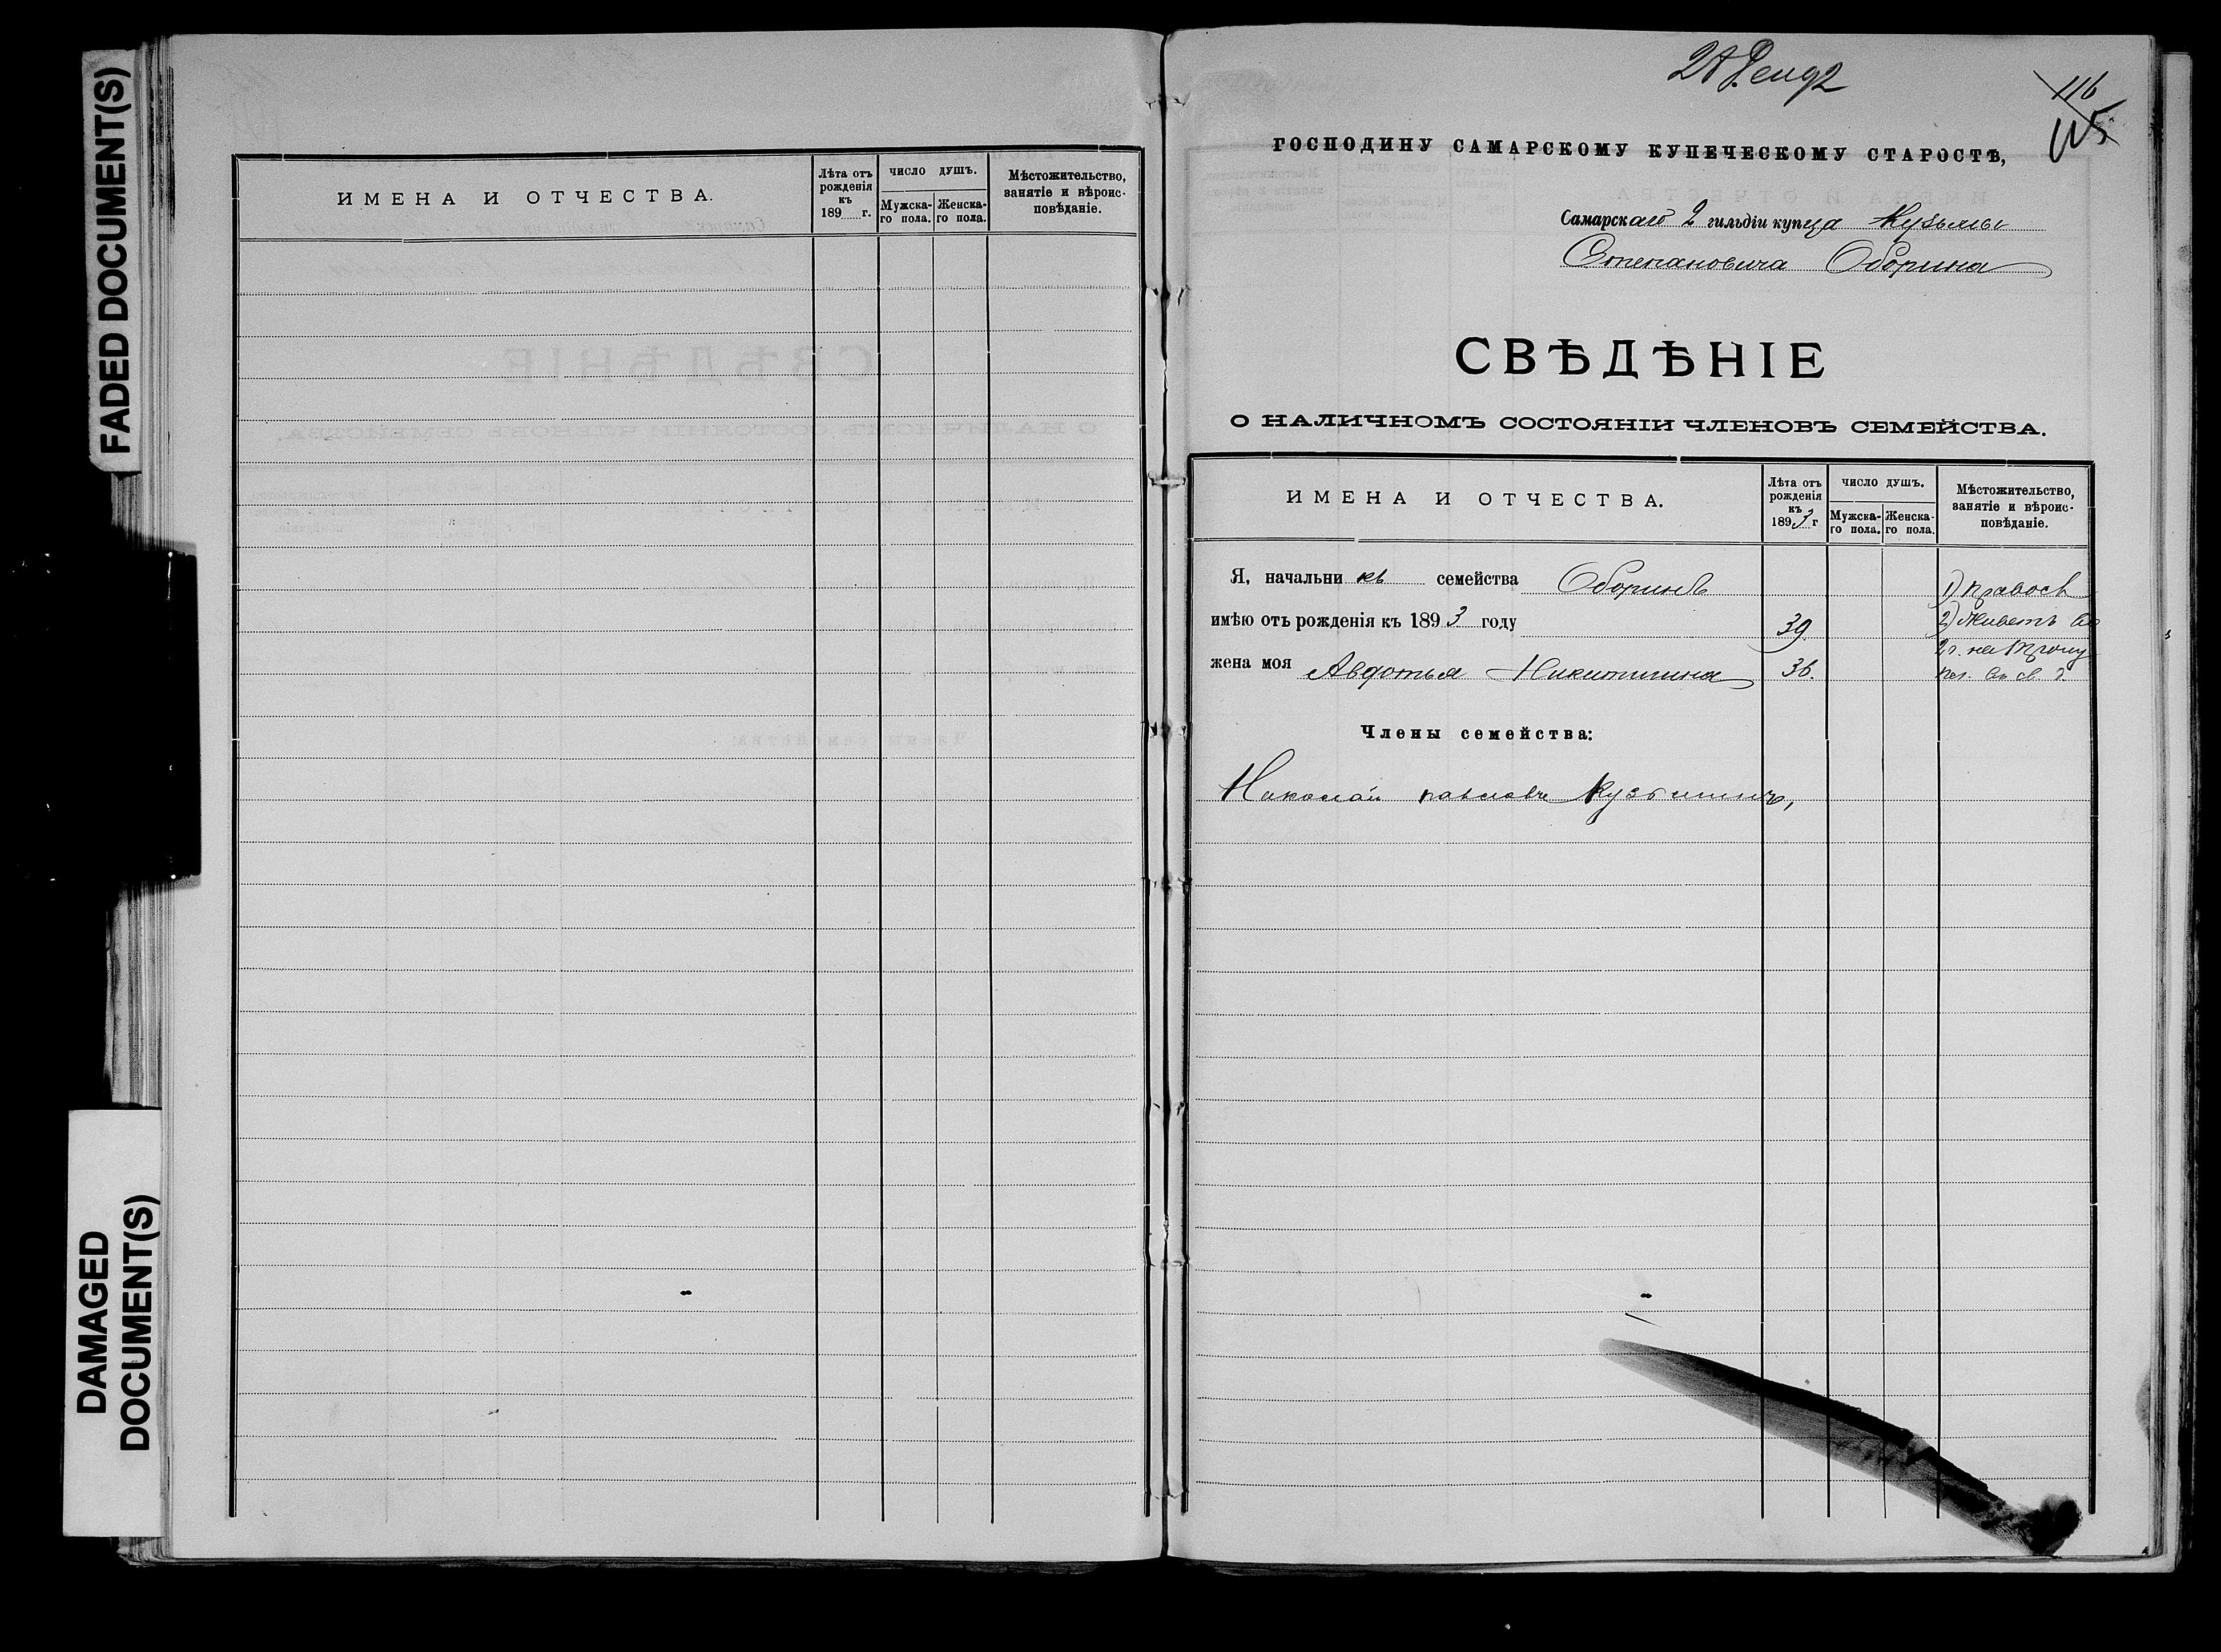 FADED DOCUMENT(S)
DAMAGED
DOCUMENT(S)
ИМЕНА И ОТЧЕСТВА.
Лѣта отъ
рожденія
къ
189 г.
ЧИСЛО ДУШЪ.
Мужска-
го пола.
Женска-
го пола.
Мѣстожительство,
занятіе и вѣроис-
повѣданіе.
116
115
ГОСПОДИНУ САМАРСКОМУ КУПЕЧЕСКОМУ СТАРОСТѢ,
Самарскаго 2 гильдіи купца Кузьмы
Степановича Оборина
СВѢДѢНІЕ
О НАЛИЧНОМЪ СОСТОЯНІИ ЧЛЕНОВЪ СЕМЕЙСТВА.
ИМЕНА И ОТЧЕСТВА.
Лѣта отъ
рожденія
къ
1893 г
ЧИСЛО ДУШЪ.
Мужска-
го пола.
Женска-
го пола.
Мѣстожительство,
занятіе и вѣроис-
повѣданіе.
Я, начальникъ семейства Оборинъ 1) правосл
имѣю отъ рожденія къ 1893 году 39 2) Живетъ во
2 ч. на
жена моя Авдотья Никитишна 36. въ св. д.
Члены семейства:
Николай Кузьминъ,